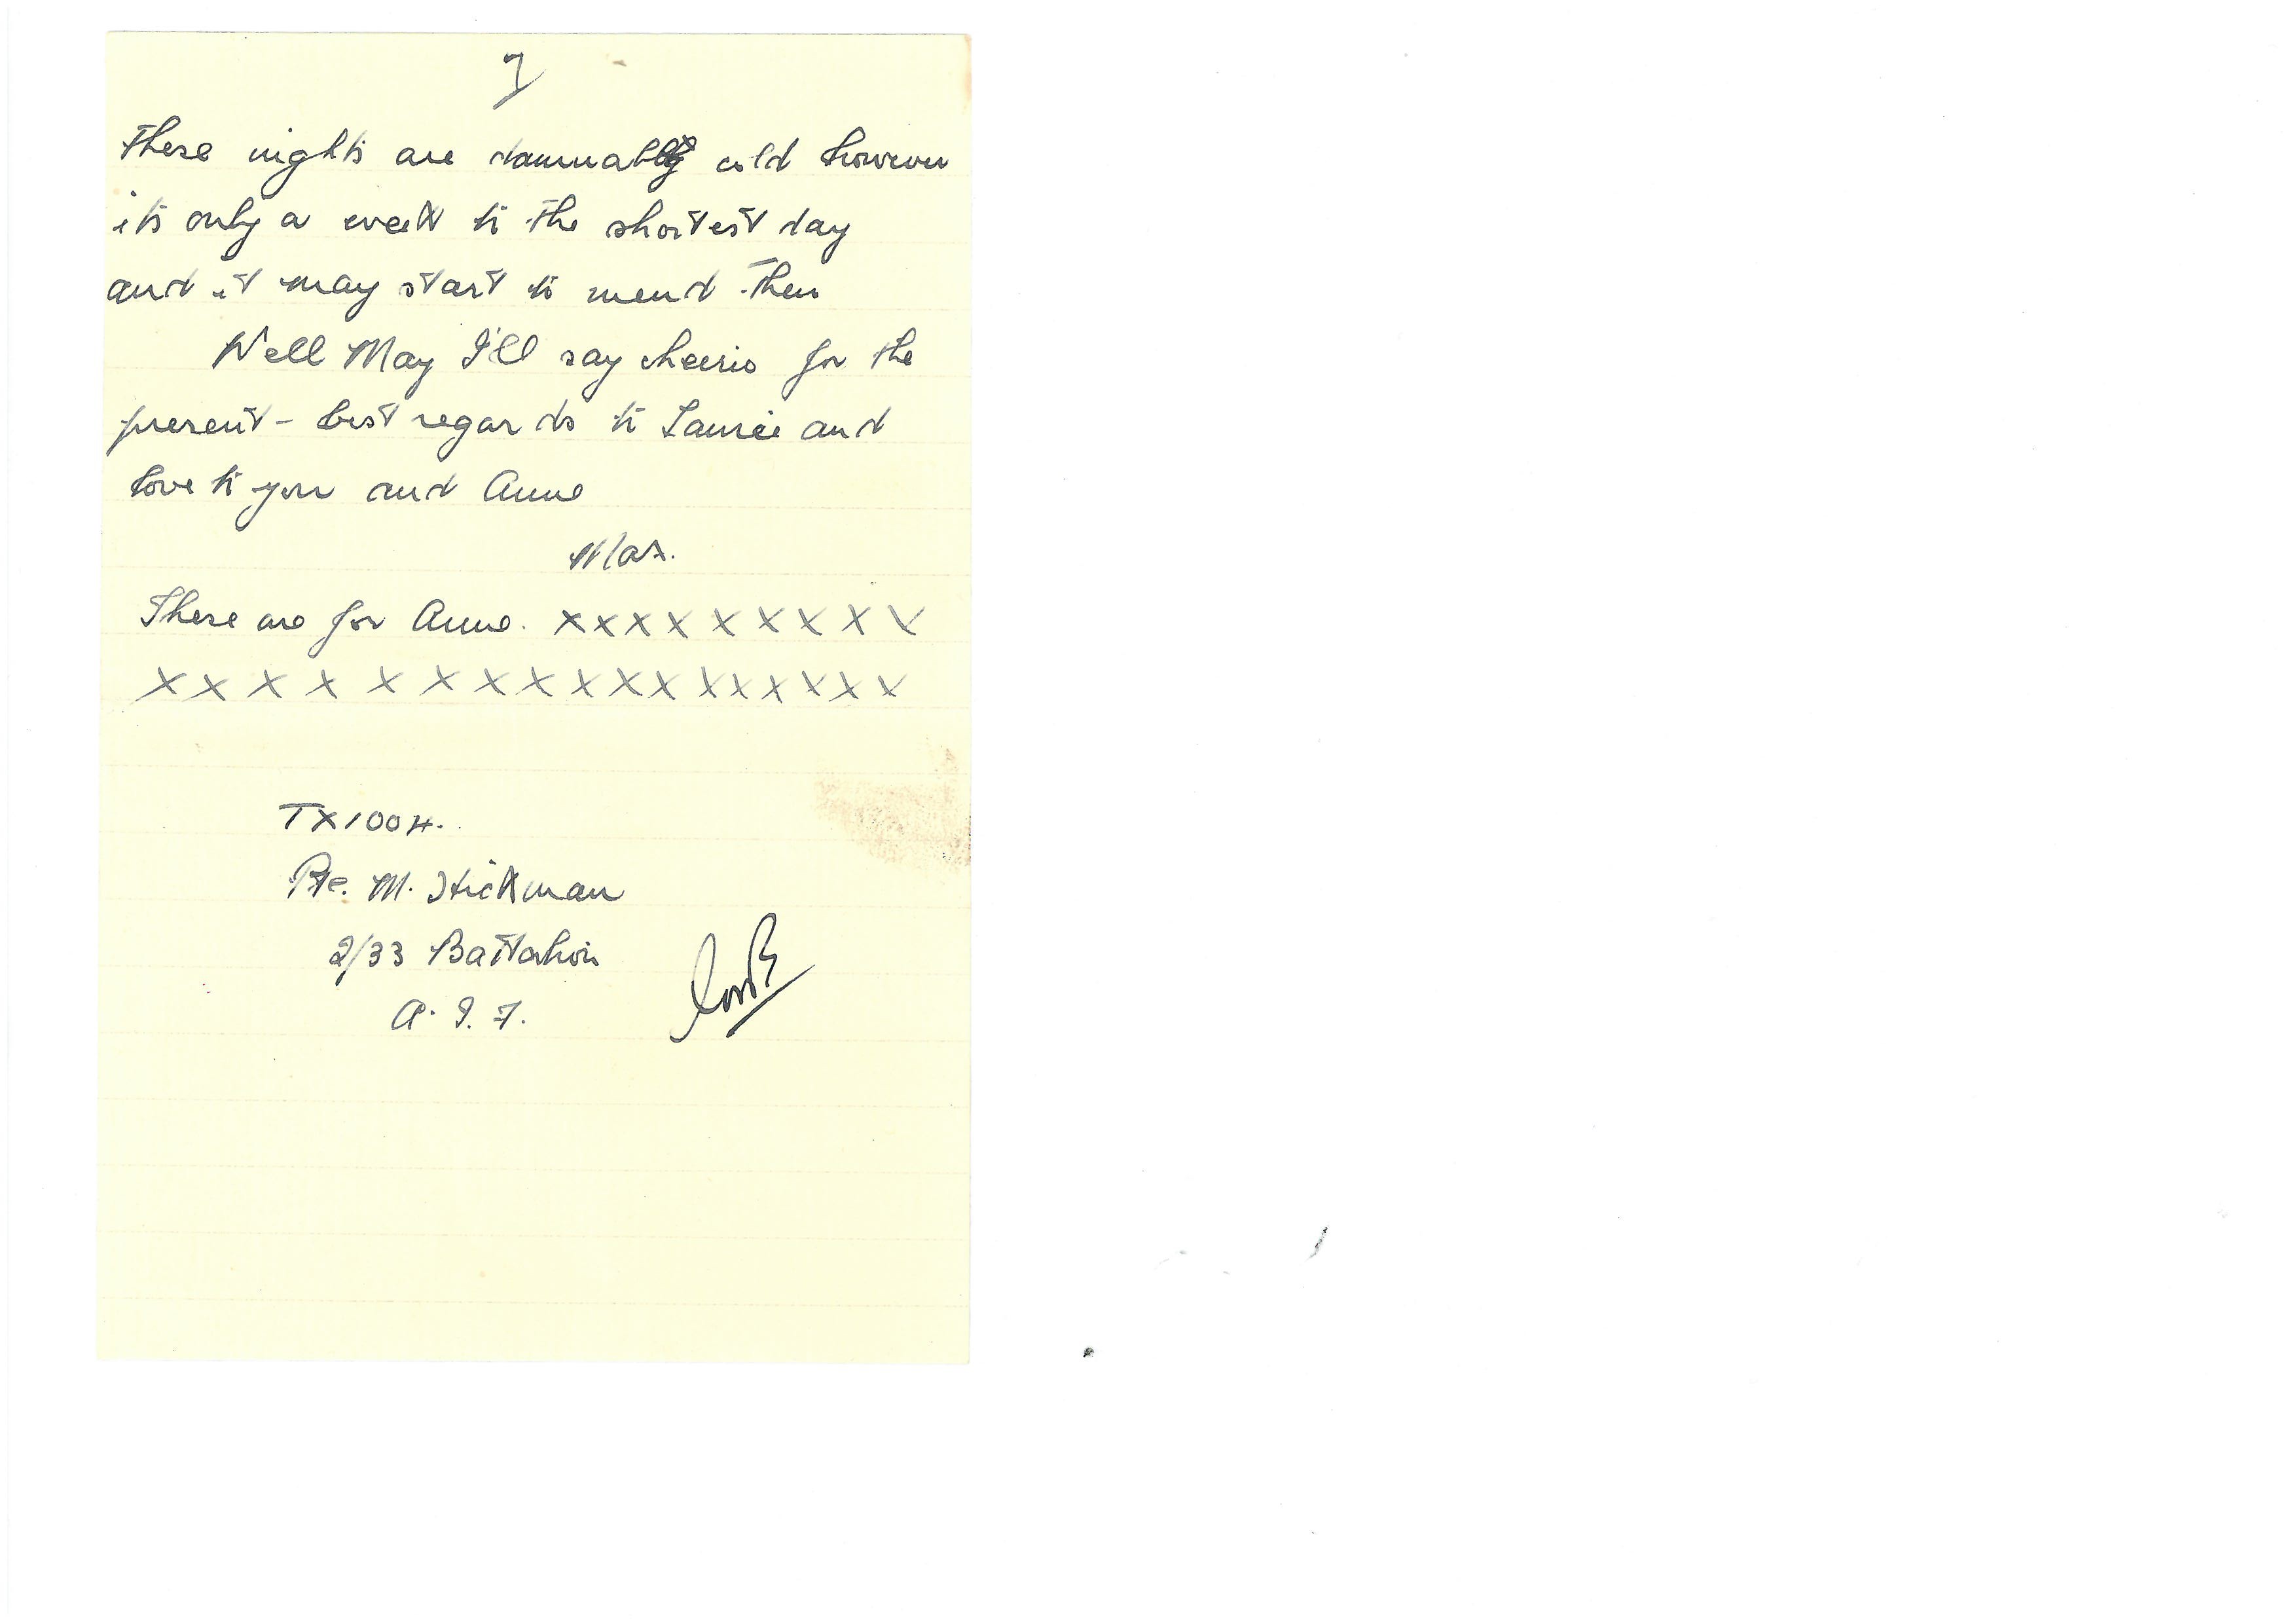 7
These nights are damnably cold however
its only a week to the shortest day
and it may start to mend then
Well May I'll say cheerio for the
present - best regards to Laurie and
love to you and Anne
Max.
These are for Anne. x x x x x x x x x x
x x x x x x x x x x x x x x x x x
TX1004.
Pte. M. Hickman
2/33 Battalion
A. I. F.